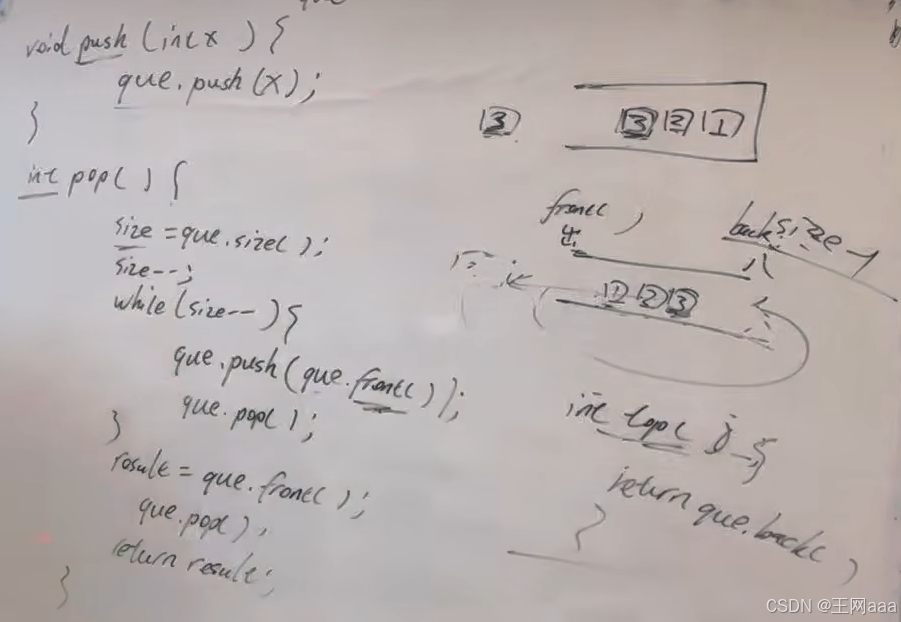 void push (int x ) {
que.push(x);
}
int pop( ) {
size = que.size( );
size--;
while (size--) {
que.push(que.front( ));
que.pop( );
}
result = que.front( );
que.pop( );
return result;
}
3
3 2 1
front( )
back
size-1
1 2 3
int top( ) {
return que.back( )
}
CSDN @王网aaa